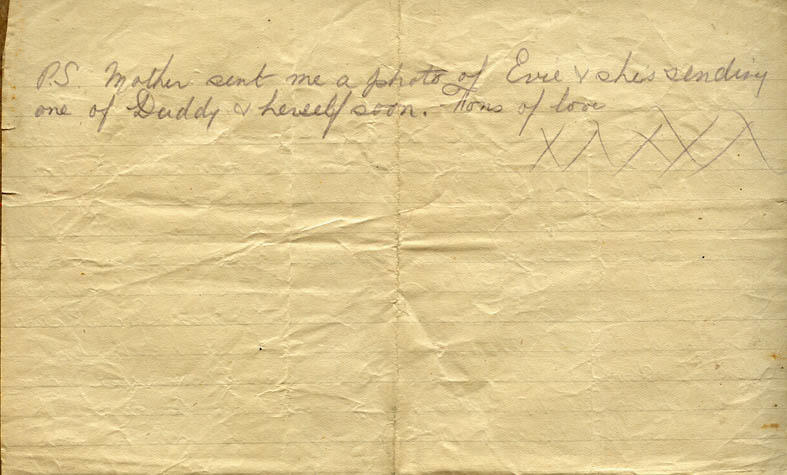 P.S. Mother sent me a photo of Evie & she's sending
one of Daddy & herself soon. Tons of love
XXXXX